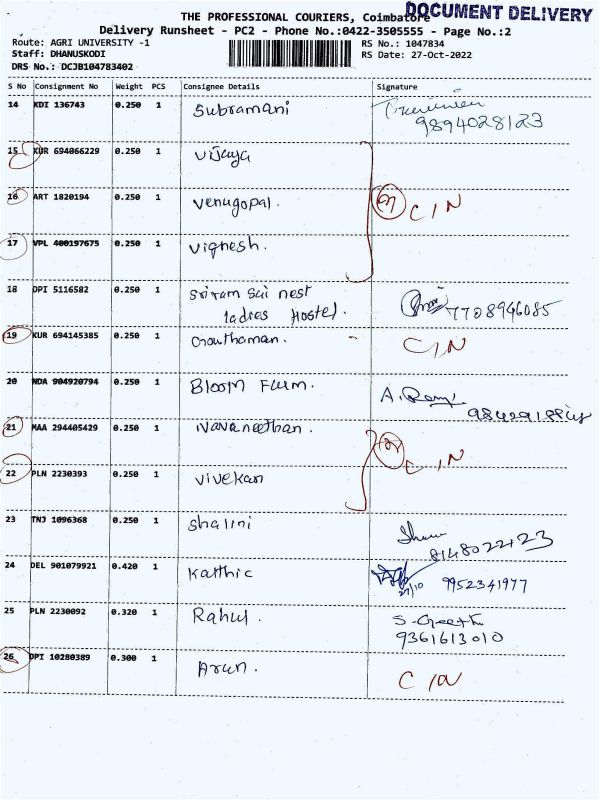 DOCUMENT DELIVERY
THE PROFESSIONAL COURIERS, Coimbatore
Delivery Runsheet - PC2 - Phone No.:0422-3505555 - Page No.:2
Route: AGRI UNIVERSITY -1 RS No.: 1047834
Staff: DHANUSKODI RS Date: 27-Oct-2022
DRS No.: DCJB104783402
S No Consignment No Weight PCS Consignee Details Signature
14 KDI 136743 0.250 1 Subramani
9894028123
15 KUR 694066229 0.250 1 Vijaya
16 ART 1820194 0.250 1 Venugopal. C/N
17 VPL 400197675 0.250 1 Vignesh.
18 DPI 5116582 0.250 1 Sriram Sai nest
ladies Hostel. 7708946085
19 KUR 694145385 0.250 1 Gowthaman. C/N
20 NDA 904920794 0.250 1 Bloom Flum. A.
21 MAA 294405429 0.250 1 Navaneethan.
22 PLN 2230393 0.250 1 Vivekan C/N
23 TNJ 1096368 0.250 1 Shalini
8148022123
24 DEL 901079921 0.420 1 Katthic 27/10 9952341977
25 PLN 2230092 0.320 1 Rahul. S-Geeth
9361613010
26 DPI 10280389 0.300 1 Arun. C/N